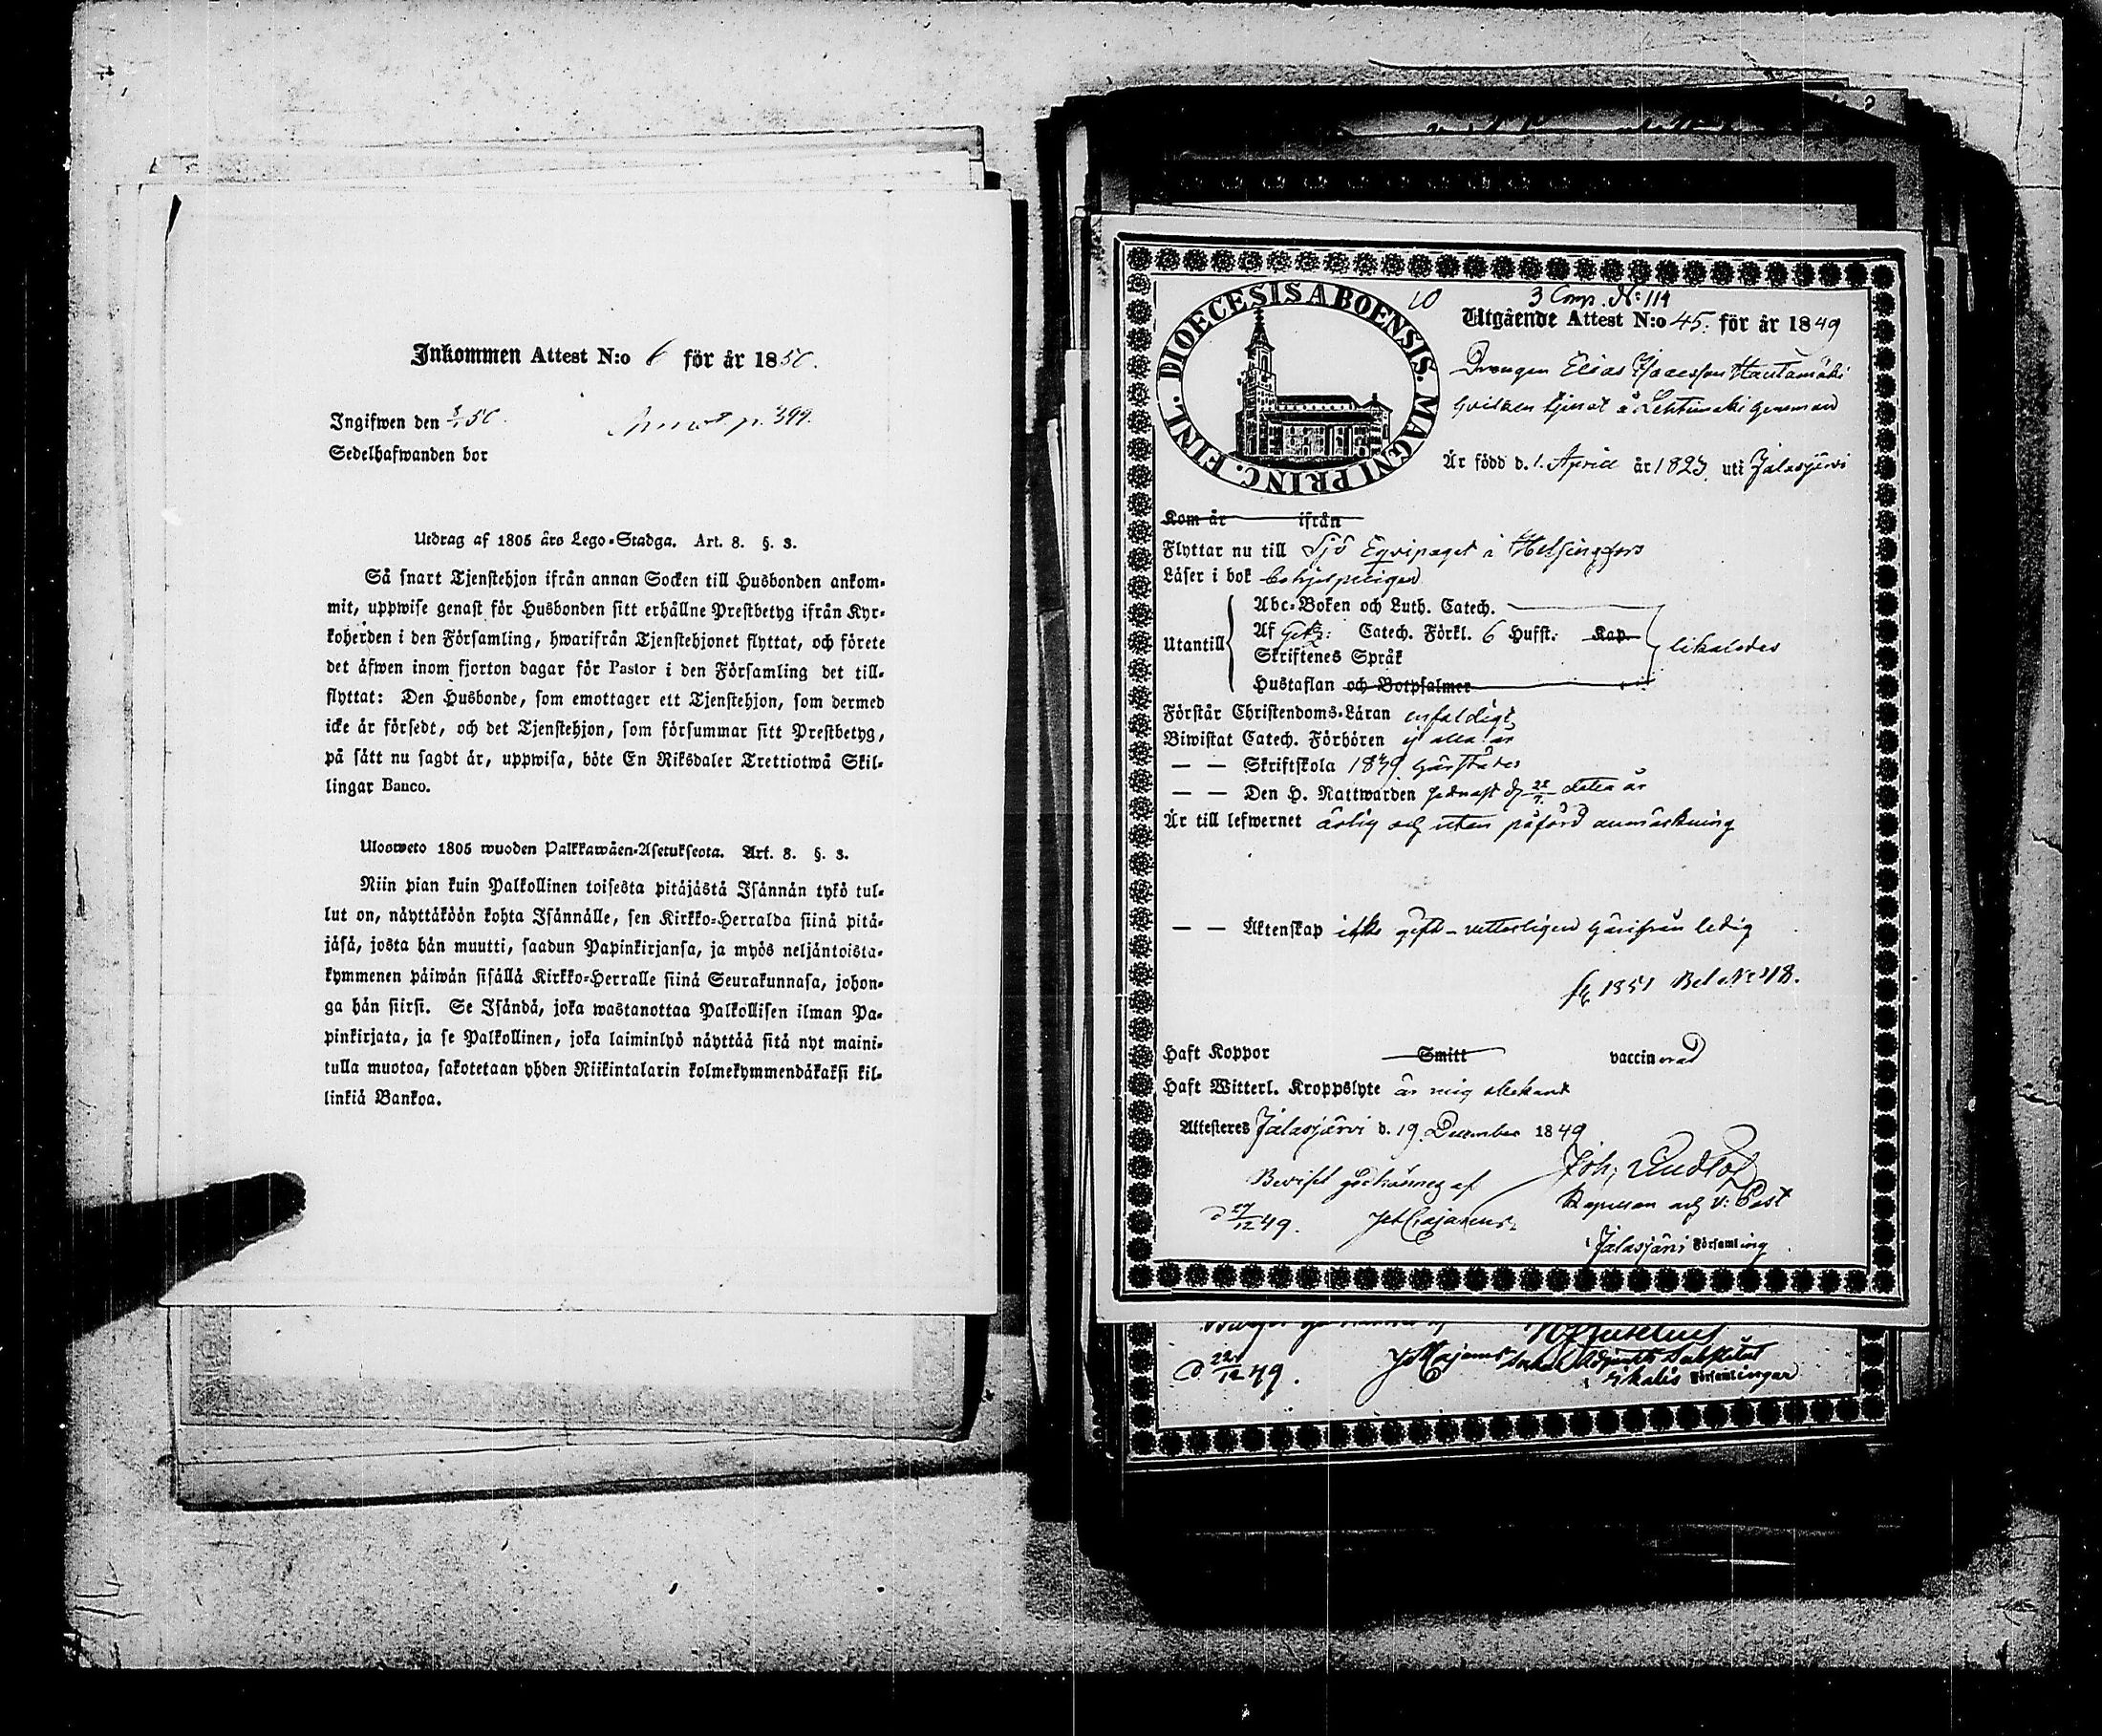 Inkommen Attest N:o 6 för år 1850.
Ingifwen den 8/1 50. Annot p. 399.
Sedelhafwanden bor
Utdrag af 1805 års Lego-Stadga. Art. 8. §. 3.
Så snart Tjenstehjon ifrån annan Socken till Husbonden ankom-
mit, uppwise genast för Husbonden sitt erhållne Prestbetyg ifrån Kyr-
koherden i den Församling, hwarifrån Tjenstehjonet flyttat, och förete
det äfwen inom fjorton dagar för Pastor i den Församling det till-
flyttat: Den Husbonde, som emottager ett Tjenstehjon, som dermed
icke är försedt, och det Tjenstehjon, som försummar sitt Prestbetyg,
på sätt nu sagdt är, uppwisa, böte En Riksdaler Trettiotwå Skil-
lingar Banco.
Ulosweto 1805 wuoden Palkkawäen-Asetuksesta. Art. 8. §. 3.
Niin pian kuin Palkollinen toisesta pitäjästä Isännän tykö tul-
lut on, näyttäköön kohta Isännälle, sen Kirkko-Herralda siinä pitä-
jäsä, josta hän muutti, saadun Papinkirjansa, ja myös neljäntoista-
kymmenen päiwän sisällä Kirkko-Herralle siinä Seurakunnasa, johon-
ga hän siirsi. Se Isändä, joka wastanottaa Palkollisen ilman Pa-
pinkirjata, ja se Palkollinen, joka laiminlyö näyttää sitä nyt maini-
tulla muotoa, sakotetaan yhden Riikintalarin kolmekymmendäkaksi kil-
linkiä Bankoa.
DIOECESIS ABOENSIS. MAGNI PRINC. FINL.
10
3 Comp. N: 114
Utgående Attest N:o 45. för år 1849
Drengen Elias Isacsson Hautamäki
hvilken tjenat å Lehtimäki hemman
Är född d. 1. April år 1823. uti Jalasjärvi
Kom år ifrån
Flyttar nu till Sjö Eqvipaget i Helsingfors
Läser i bok behjelpligen
Utantill
Abc-Boken och Luth. Catech.
Af Catech. Förkl. 6 Hufst. Kap.
Skriftenes Språk
Hustaflan och Botpsalmer
likaledes
Förstår Christendoms-Läran enfaldigt
Biwistat Catech. Förhören ej alla år
— — Skriftskola 1839 härstädes
— — Den H. Nattwarden sednast d 22/7 detta år
Är till lefwernet ärlig och utan påförd anmärkning
— — Äktenskap icke gift – vetterligen härifrån ledig
fl. 1851 Bet. N: 218.
Haft Koppor Smitt vaccinerad
Haft Witterl. Kroppslyte är mig obekant
Attesteres Jalasjärvi d. 19. December 1849
Joh: Lindlöf
Beviset godkännes af
Kapellan och v: Past
d 27/12 49. Joh Cajanus.
i Jalasjärvi Församling
d 22/12 49. Joh Cajanus
i Ikalis Församlingar